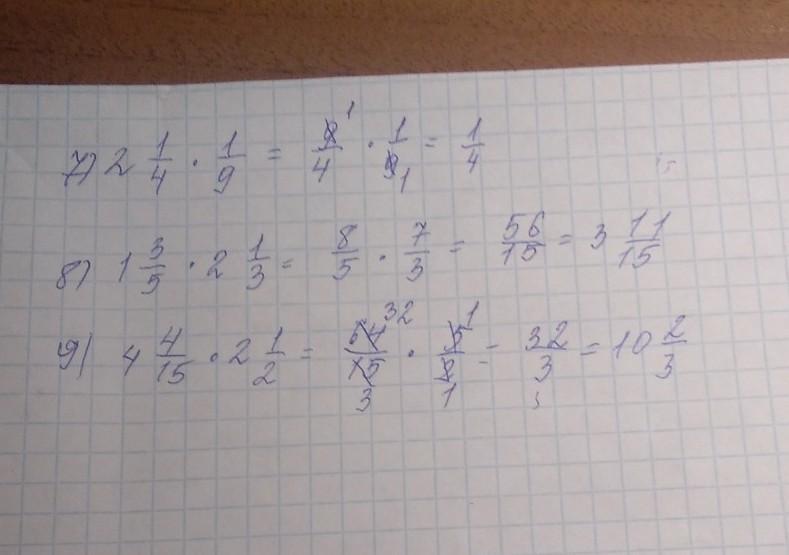 7) 2 1/4 · 1/9 = 9/4 1 · 1/9 1 = 1/4
8) 1 3/5 · 2 1/3 = 8/5 · 7/3 = 56/15 = 3 11/15
9) 4 4/15 · 2 1/2 = 64/15 32 3 · 5/2 1 1 = 32/3 = 10 2/3